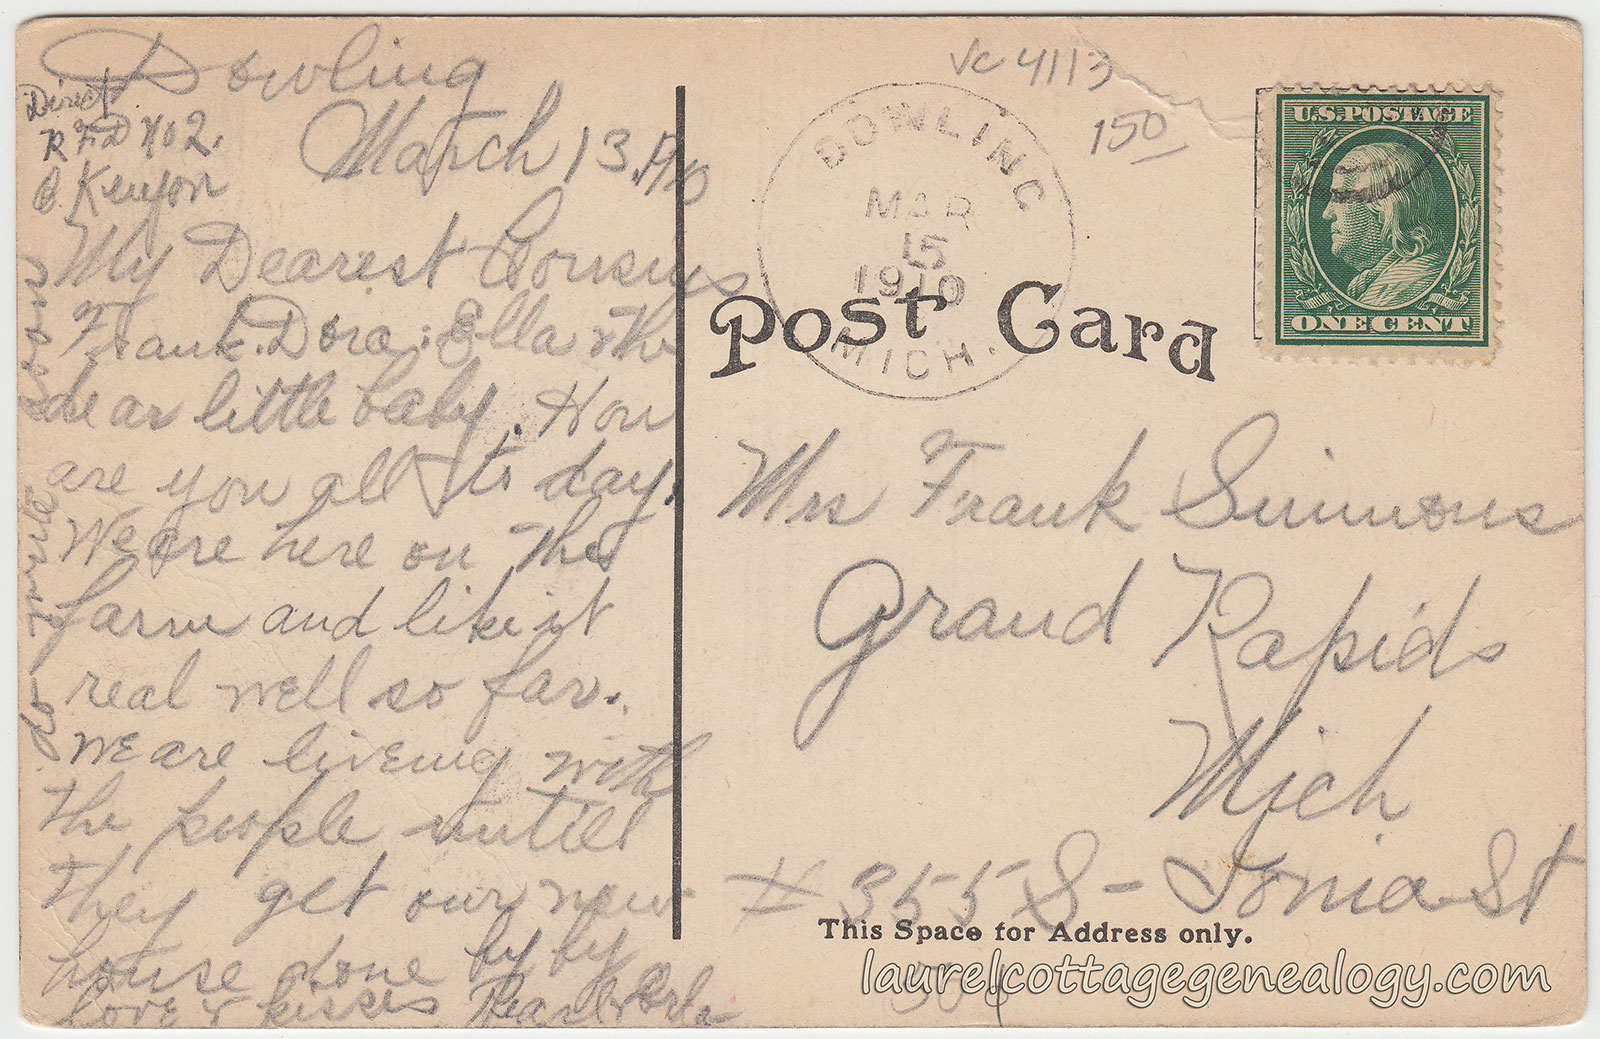 Dowling
March 13. 1910
Direct
R F D No 2.
C. Kenyon
My Dearest Cousins
Frank. Dora. Ella & the
dear little baby. How
are you all to day.
We are here on this
farm and like it
real well so far.
we are liveing with
the people untill
they get our new
house done by by
love & kisses Pearl & Orla
do write soon
vc 4113
150
DOWLING
MAR
15
1910
MICH.
U.S. POSTAGE
ONE CENT
Post Card
Mrs Frank Simmons
Grand Rapids
Mich
# 355 S - Ionia St
This Space for Address only.
504
laurelcottagegenealogy.com